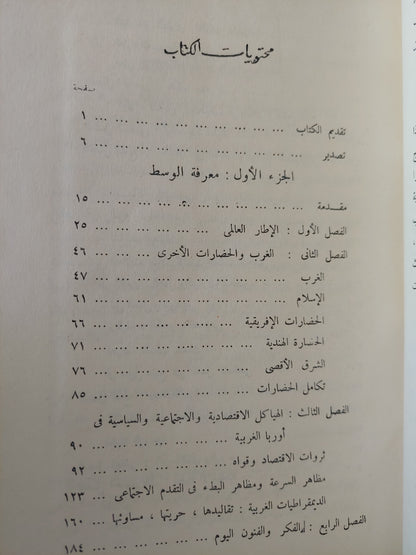 محتويات الكتاب
صفحة
تقديم الكتاب ... ... ... ... ... ... ... ... ... ١
تصدير ... ... ... ... ... ... ... ... ... ٦
الجزء الأول : معرفة الوسط
مقدمة ... ... ... ... ... ... ... ... ... ١٥
الفصل الأول : الإطار العالمى ... ... ... ... ... ... ٢٥
الفصل الثانى : الغرب والحضارات الأخرى ... ... ... ... ٤٦
الغرب ... ... ... ... ... ... ... ... ... ٤٧
الإسلام ... ... ... ... ... ... ... ... ... ٦١
الحضارات الإفريقية ... ... ... ... ... ... ... ٦٦
الحضارة الهندية ... ... ... ... ... ... ... ٧١
الشرق الأقصى ... ... ... ... ... ... ... ٧٦
تكامل الحضارات ... ... ... ... ... ... ... ٨٥
الفصل الثالث : الهياكل الاقتصادية والاجتماعية والسياسية فى
أوربا الغربية ... ... ... ... ... ... ... ٩٠
ثروات الاقتصاد وقواه ... ... ... ... ... ... ٩٢
مظاهر السرعة ومظاهر البطء فى التقدم الاجتماعى ... ... ١٢٣
الديمقراطيات الغربية : تقاليدها ، حريتها ، مساوئها ... ١٦٠
الفصل الرابع : الفكر والفنون اليوم ... ... ... ... ... ١٨٤